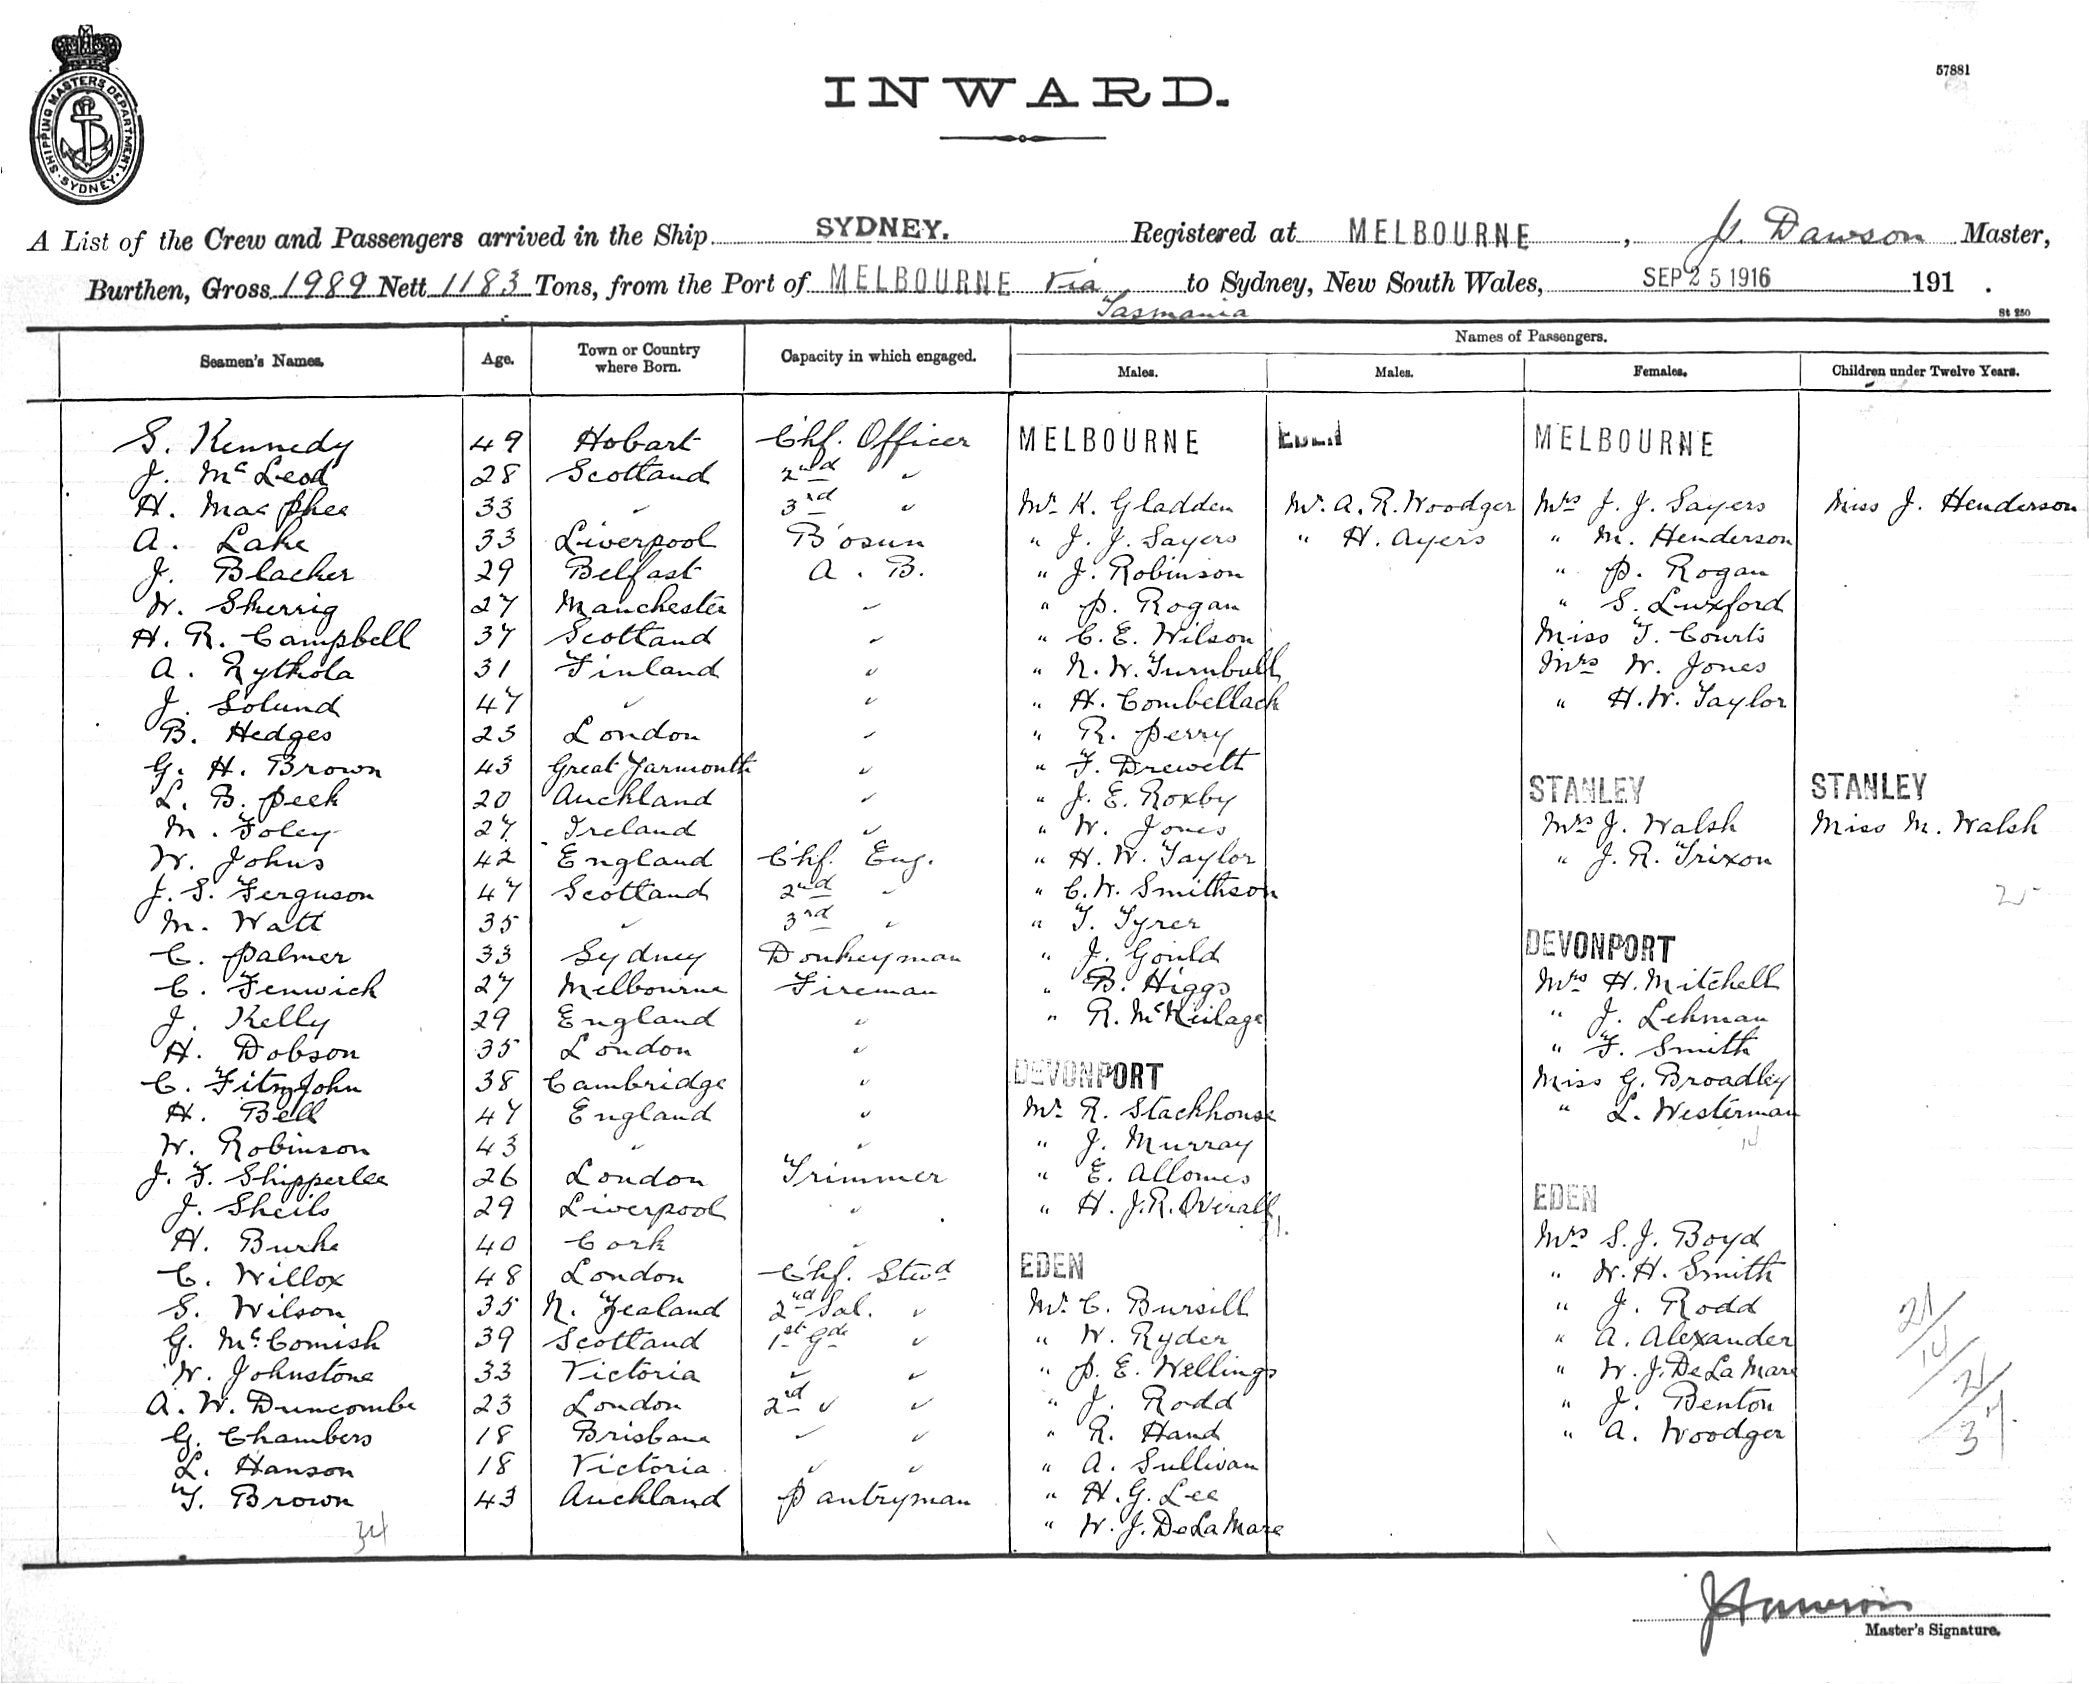 SHIPPING MASTERS DEPARTMENT. SYDNEY.
57881
INWARD.
A List of the Crew and Passengers arrived in the Ship SYDNEY. Registered at MELBOURNE, J. Dawson Master,
Burthen, Gross 1989 Nett 1183 Tons, from the Port of MELBOURNE via Tasmania to Sydney, New South Wales, SEP 25 1916 191 .
St 250
Seamen's Names. Age. Town or Country where Born. Capacity in which engaged. Names of Passengers.
Males. Males. Females. Children under Twelve Years.
S. Kennedy 49 Hobart Chf. Officer
J. McLeod 28 Scotland 2nd "
H. MacPhee 33 " 3rd "
A. Lake 33 Liverpool Bosun
J. Blacker 29 Belfast A. B.
W. Sherrig 27 Manchester "
H. R. Campbell 37 Scotland "
A. Rythola 31 Finland "
J. Solund 47 " "
B. Hedges 23 London "
G. H. Brown 43 Great Yarmouth "
L. B. Peek 20 Auckland "
M. Foley 27 Ireland "
W. Johns 42 England Chf. Eng.
J. S. Ferguson 47 Scotland 2nd "
M. Watt 35 " 3rd "
C. Palmer 33 Sydney Donkeyman
C. Fenwick 27 Melbourne Fireman
J. Kelly 29 England "
H. Dobson 35 London "
C. FitzJohn 38 Cambridge "
H. Bell 47 England "
W. Robinson 43 " "
J. F. Shipperlee 26 London Trimmer
J. Sheils 29 Liverpool "
H. Burke 40 Cork "
C. Willox 48 London Chf. Stewd
S. Wilson 35 N. Zealand 2nd Sal. "
G. McComish 39 Scotland 1st Gde "
W. Johnstone 33 Victoria " "
A. W. Duncombe 23 London 2nd " "
G. Chambers 18 Brisbane " "
L. Hanson 18 Victoria " "
T. Brown 43 Auckland Pantryman
34
MELBOURNE
Mr. K. Gladden
" J. J. Sayers
" J. Robinson
" P. Rogan
" C. E. Wilson
" N. W. Turnbull
" H. Combellack
" R. Perry
" F. Drewett
" J. E. Roxby
" W. Jones
" H. W. Taylor
" C. W. Smithson
" T. Tyrer
" J. Gould
" B. Higgs
" R. McNeilage
DEVONPORT
Mr. R. Stackhouse
" J. Murray
" E. Allomes
" H. J. R. Overall
EDEN
Mr. C. Bursill
" W. Ryder
" P. E. Wellings
" J. Rodd
" R. Hand
" A. Sullivan
" H. G. Lee
" W. J. DeLaMare
EDEN
Mr. A. R. Woodger
" H. Ayers
MELBOURNE
Mrs J. J. Sayers
" M. Henderson
" P. Rogan
" S. Luxford
Miss T. Courts
Mrs W. Jones
" H. W. Taylor
STANLEY
Mrs J. Walsh
" J. R. Trixon
DEVONPORT
Mrs H. Mitchell
" J. Lehman
" F. Smith
Miss G. Broadley
" L. Westerman
14
EDEN
Mrs S. J. Boyd
" W. H. Smith
" J. Rodd
" A. Alexander
" W. J. DeLaMare
" J. Benton
" A. Woodger
Miss J. Henderson
STANLEY
Miss M. Walsh
Master's Signature.